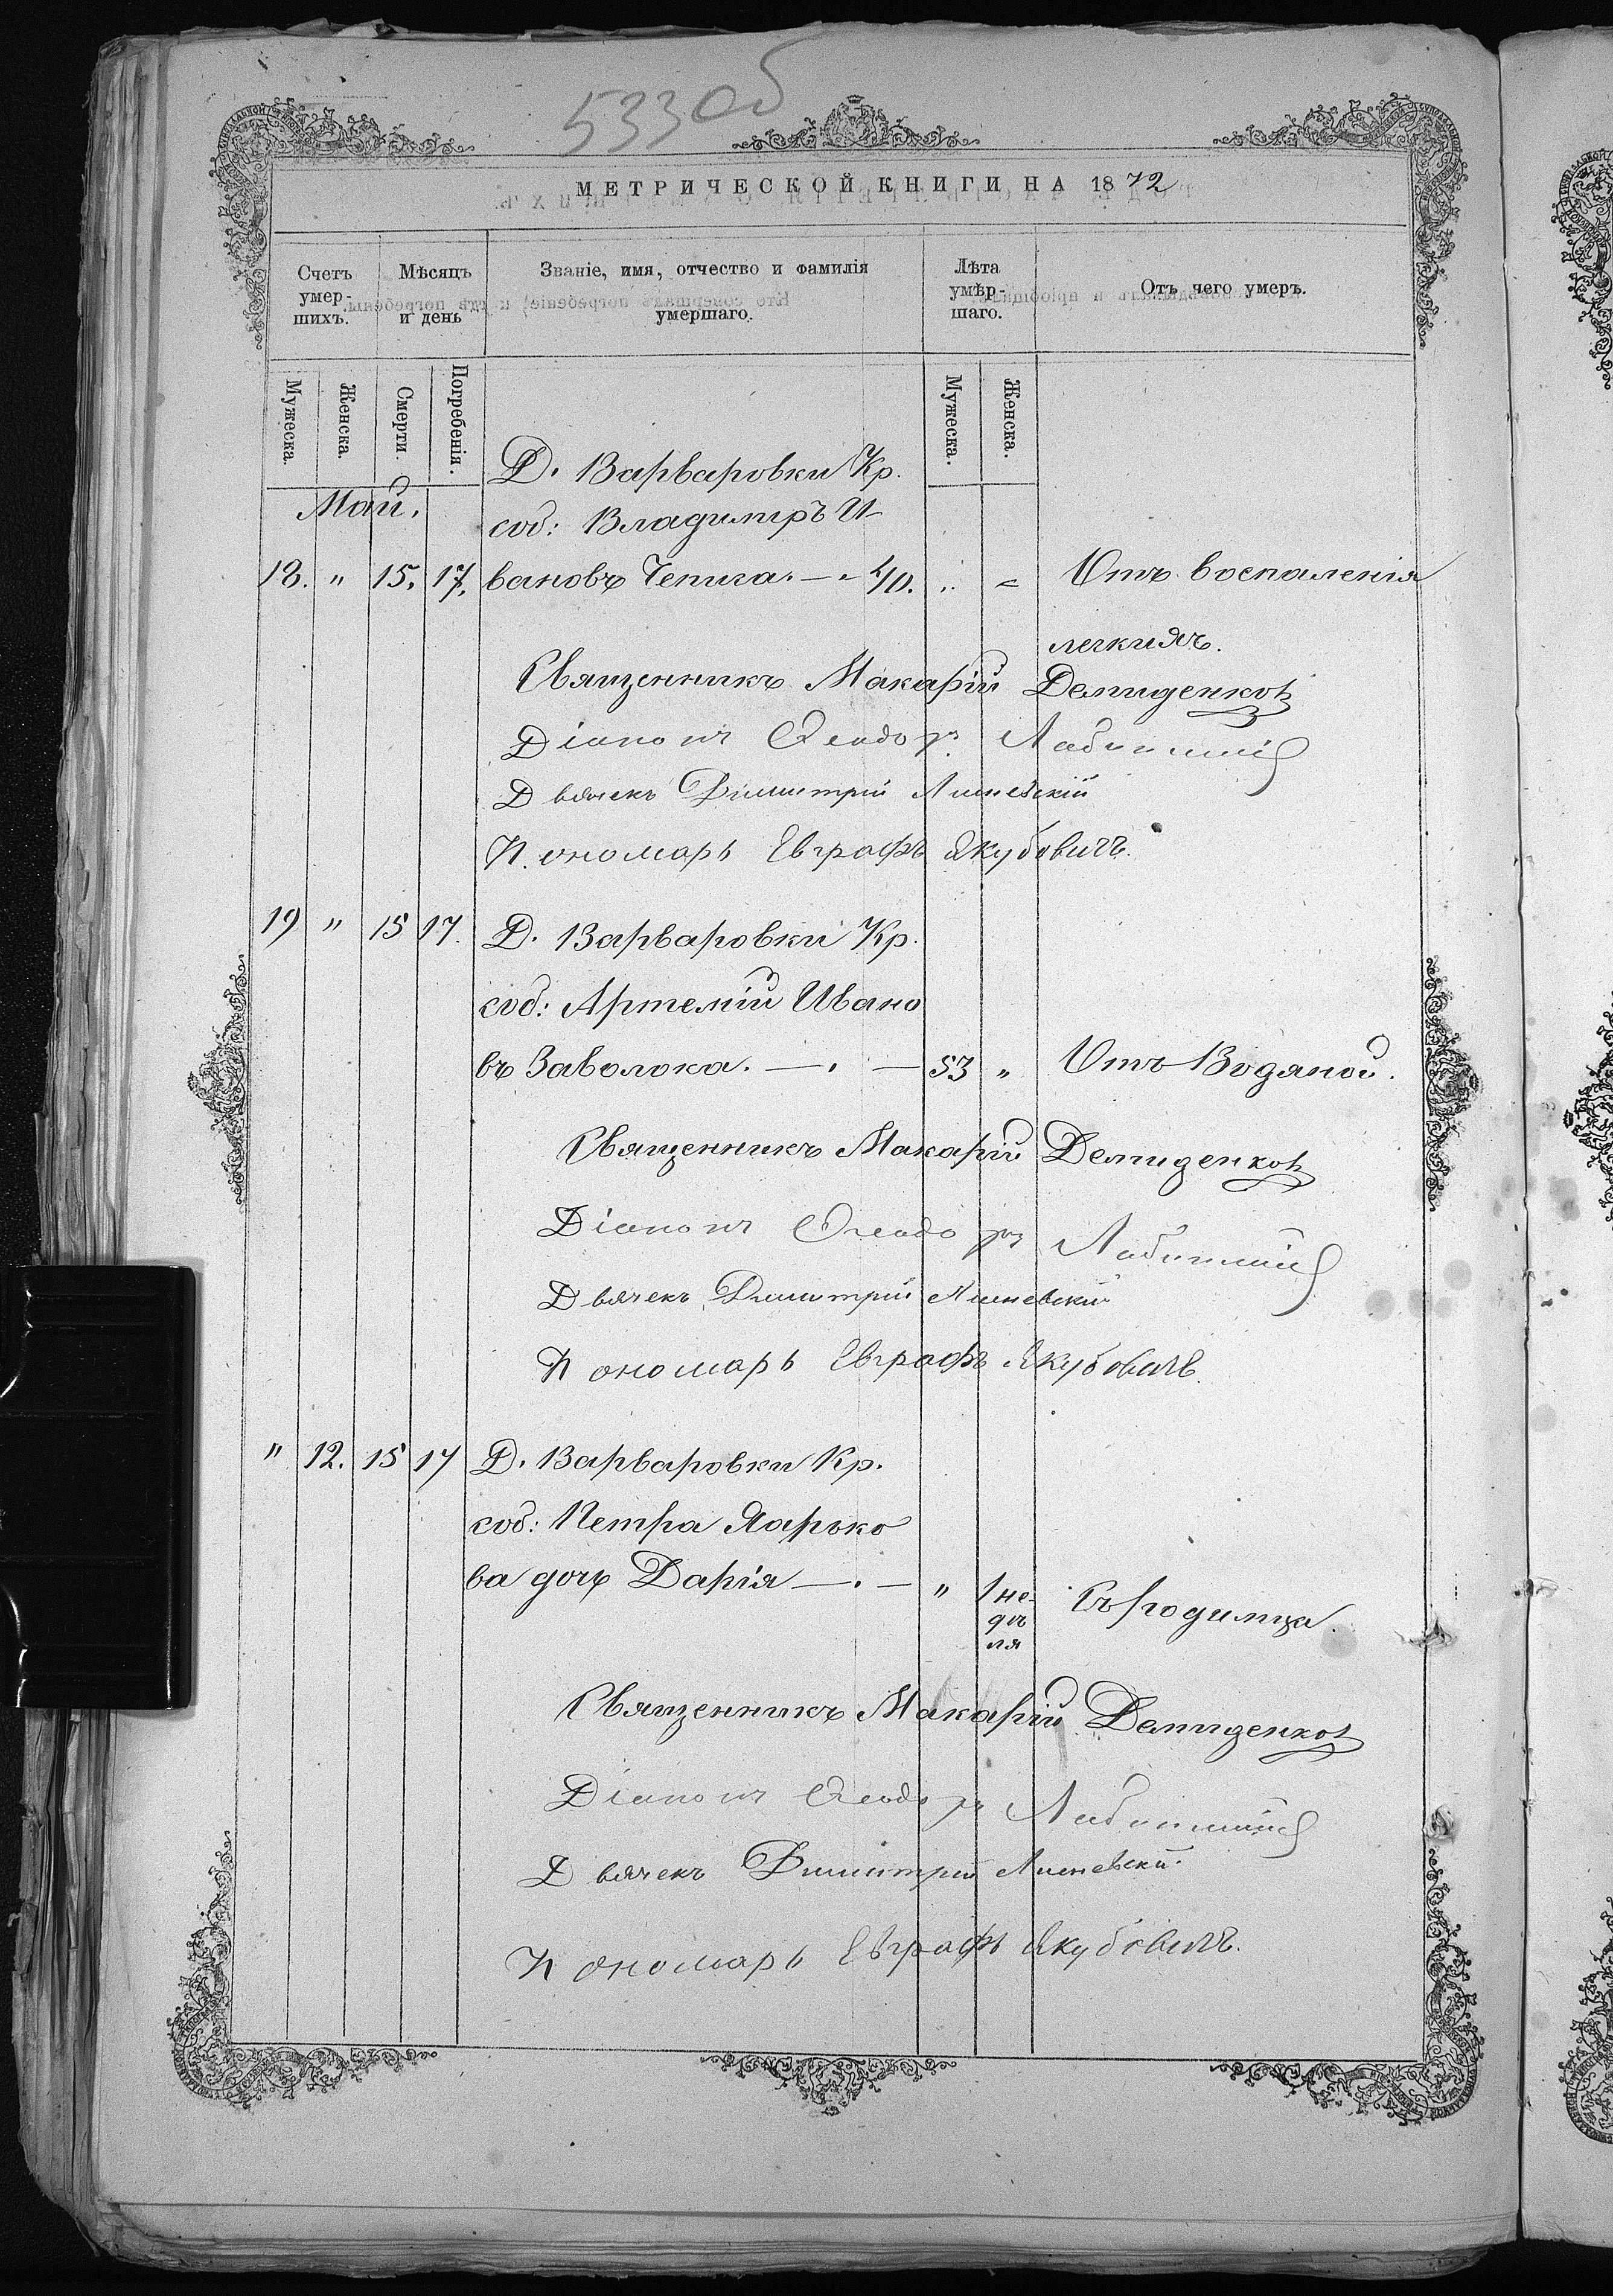 533 об
МЕТРИЧЕСКОЙ КНИГИ НА 1872
Счетъ умер- шихъ.
Мѣсяцъ и день
Званіе, имя, отчество и фамилія умершаго.
Лѣта умер- шаго.
Отъ чего умеръ.
Мужеска. Женска. Смерти. Погребенія. Мужеска. Женска.
Д. Варваровки Кр.
Май.
соб: Владимиръ И-
18. " 15. 17. вановъ Чепига. — 40. " Отъ воспаленія
легкихъ.
Священникъ Макарій Демиденковъ
Діаконъ Ѳеодоръ
Дьячекъ Димитрій Лишневскій
Пономарь Евграфъ Якубовичъ.
19 " 15 17. Д. Варваровки Кр.
соб: Артемій Ивано
въ Заволока. — . — 53 " Отъ Водяной.
Священникъ Макарій Демиденковъ
Діаконъ Ѳеодоръ
Дьячекъ Димитрій Лишневскій
Пономарь Евграфъ Якубовичъ.
" 12. 15 17 Д. Варваровки Кр.
соб: Петра Яарько
ва дочь Дарія — . — " 1 не-
дѣ
ля
Съ родимца.
Священникъ Макарій Демиденковъ
Діаконъ Ѳеодоръ
Дьячекъ Димитрій Лишневскій.
Пономарь Евграфъ Якубовичъ.